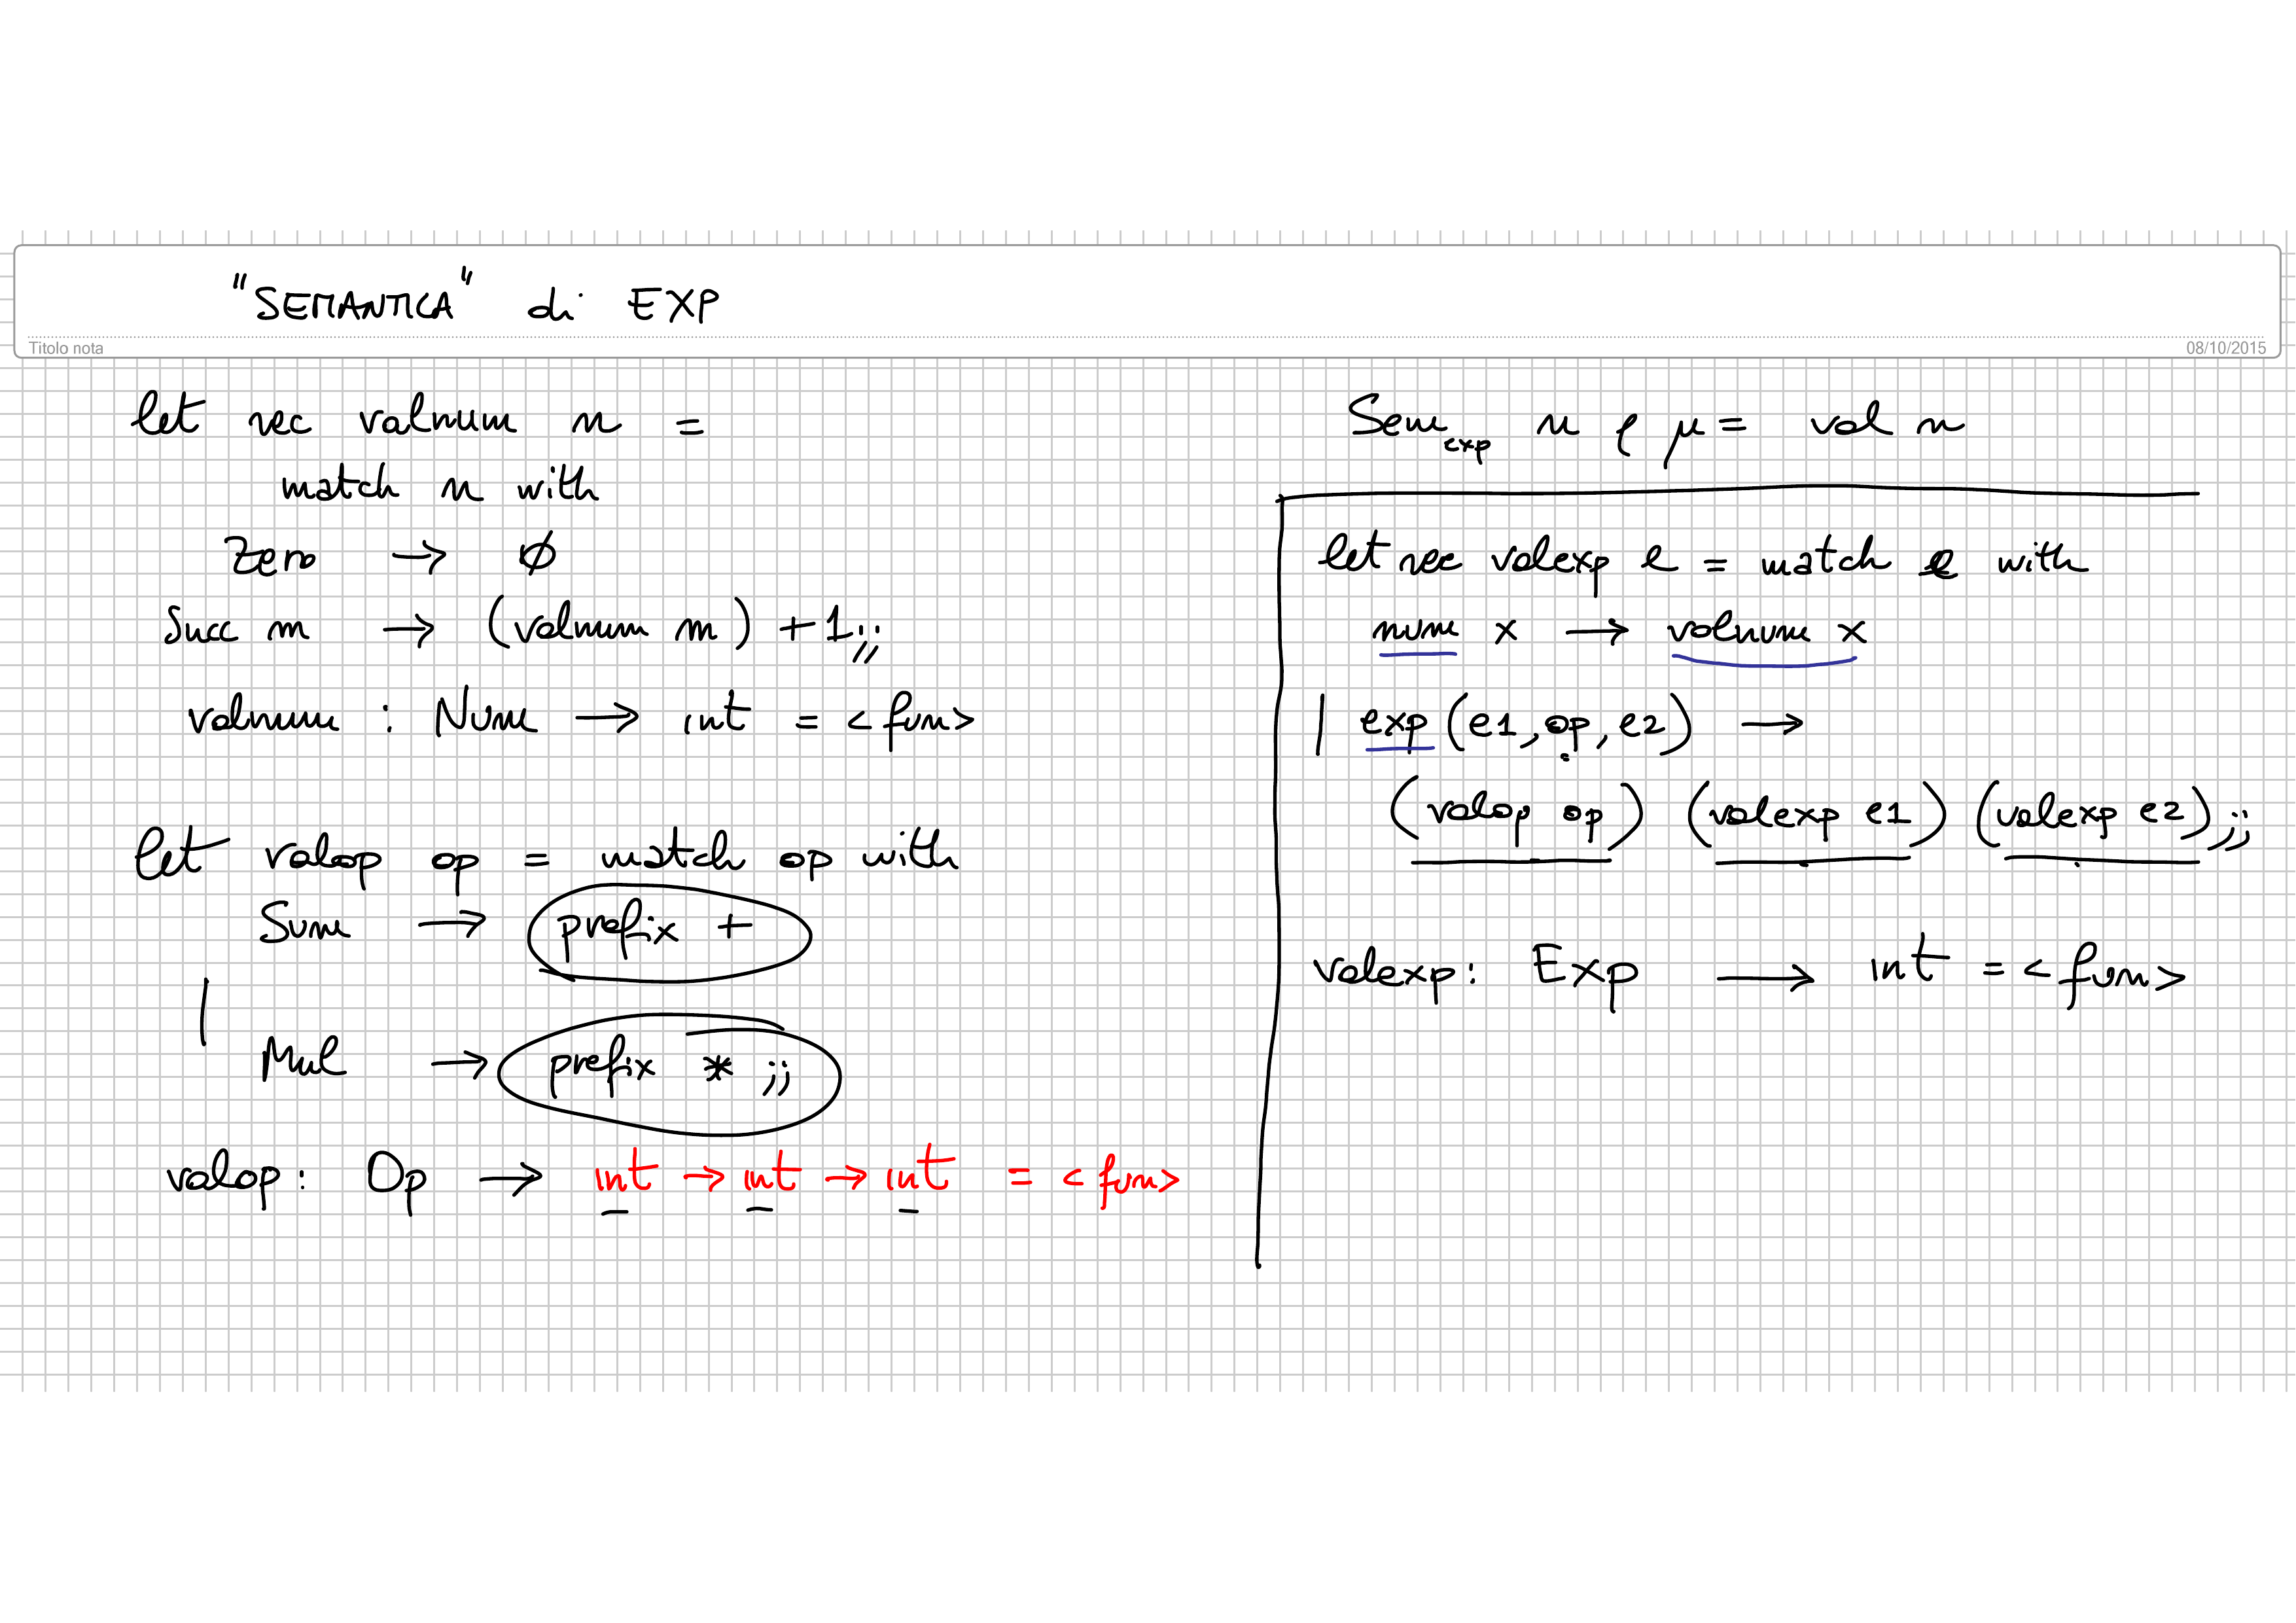 "SEMANTICA" di EXP
Titolo nota
08/10/2015
let rec valnum n =
match n with
Zero → ∅
Succ m → (valnum m) +1;;
valnum : Num → int = <fun>
let valop op = match op with
Sum → prefix +
|
Mul → prefix * ;;
valop: Op → int → int → int = <fun>
Sem exp n ρ μ = val n
let rec valexp e = match e with
num x → valnum x
| exp (e1, op, e2) →
(valop op) (valexp e1) (valexp e2);;
valexp: Exp → int = <fun>